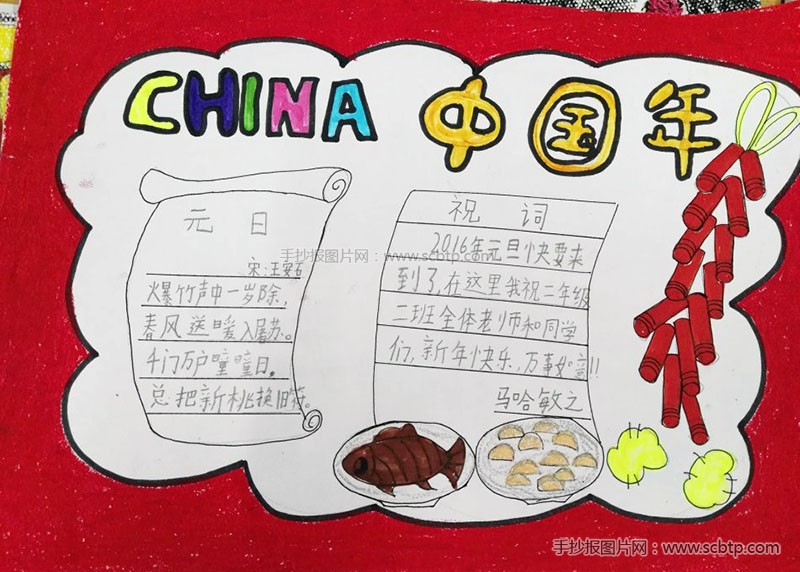 CHINA 中国年
元日
宋:王安石
爆竹声中一岁除,
春风送暖入屠苏。
千门万户曈曈日,
总把新桃换旧符。
祝词
2016年元旦快要来
到了,在这里我祝二年级
二班全体老师和同学
们,新年快乐,万事如意!!
马哈敏之
手抄报图片网:www.scbtp.com
手抄报图片网:www.scbtp.com